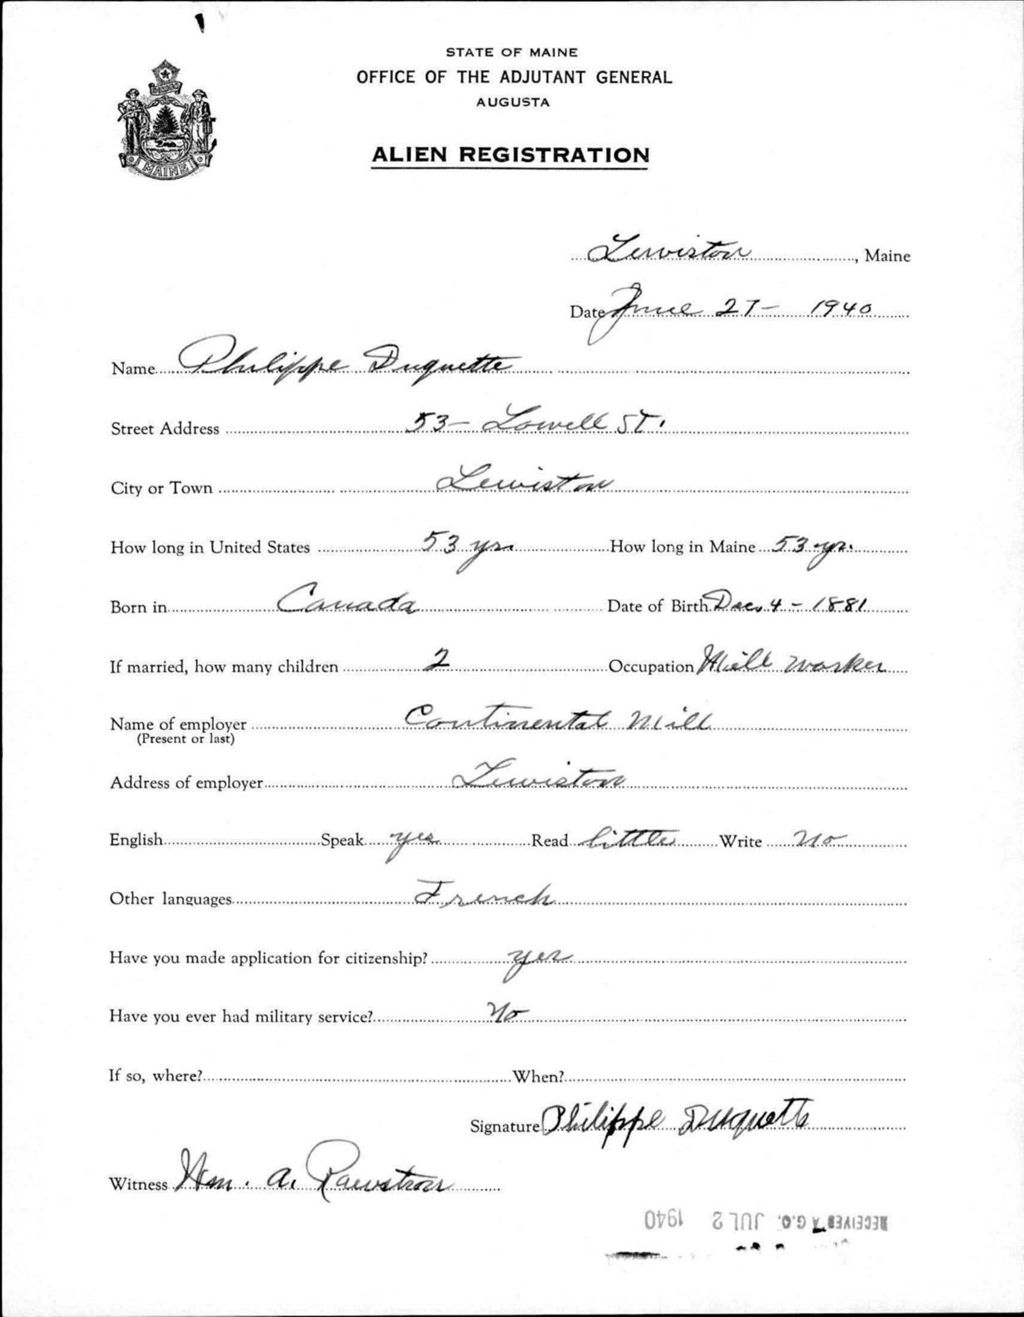 STATE OF MAINE
OFFICE OF THE ADJUTANT GENERAL
AUGUSTA
ALIEN REGISTRATION
MAINE
Lewiston, Maine
Date June 27 - 1940
Name Philippe Duquette
Street Address 53 - Lowell ST.
City or Town Lewiston
How long in United States 53 yrs. How long in Maine 53 yr.
Born in Canada Date of Birth Dec. 4 - 1881
If married, how many children 2 Occupation Mill worker
Name of employer Continental Mill
(Present or last)
Address of employer Lewiston
English Speak yes Read little Write No
Other languages French
Have you made application for citizenship? yes
Have you ever had military service? No
If so, where? When?
Signature Philippe Duquette
Witness Wm. A. Rawstron
RECEIVED A.G.O. JUL 2 1940